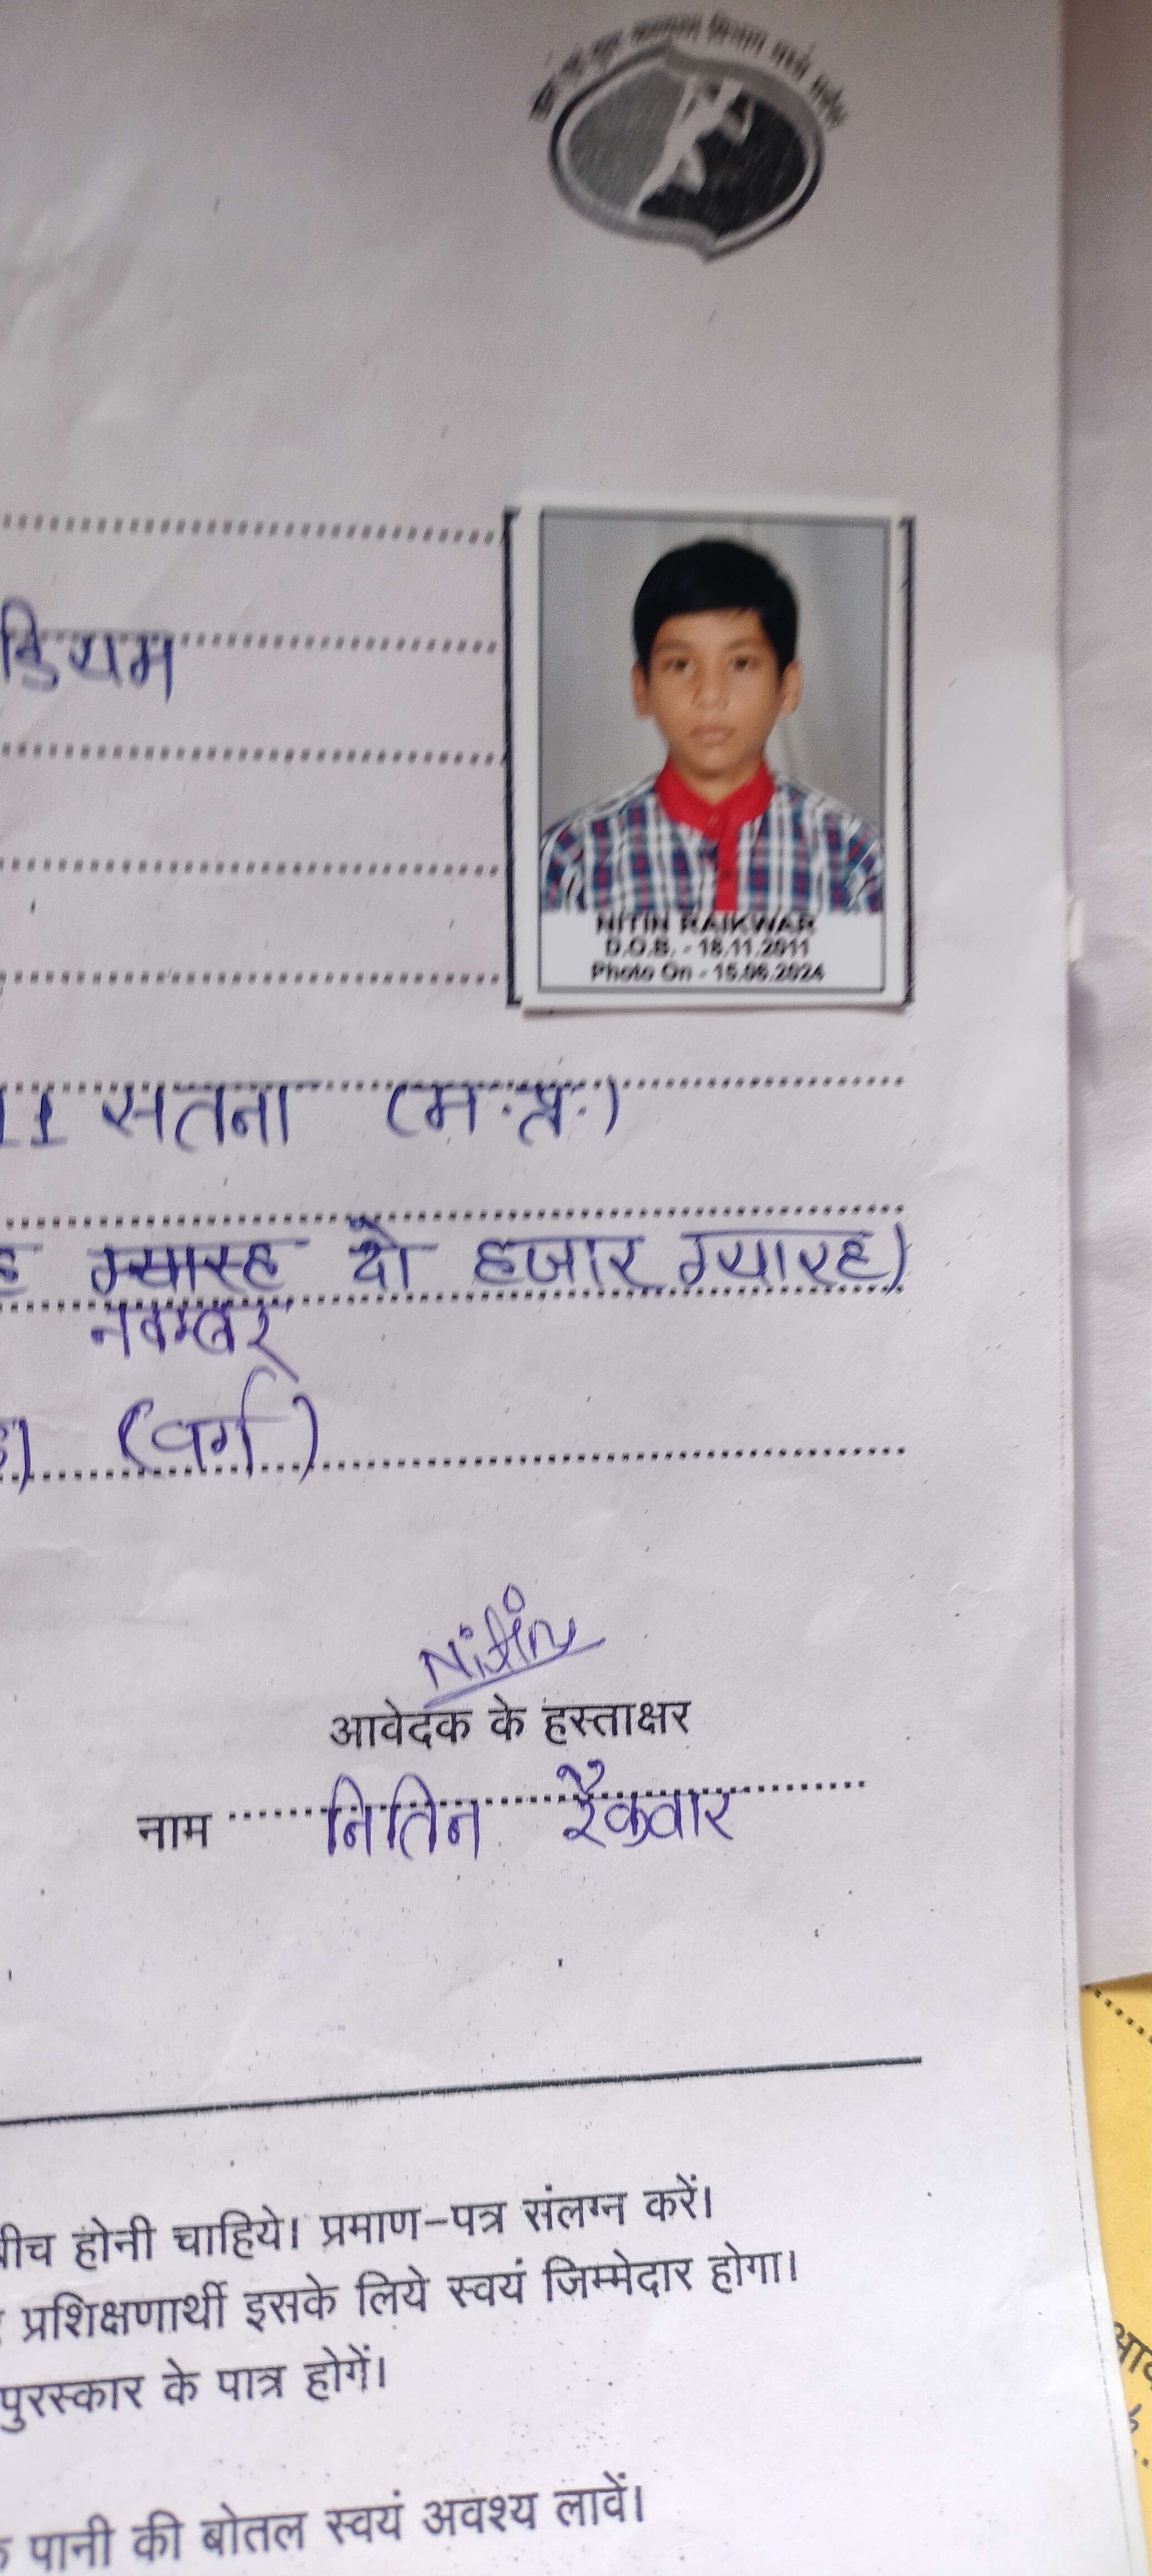 खेल एवं युवा कल्याण विभाग मध्य प्रदेश
डियम
NITIN RAIKWAR
D.O.B. - 18.11.2011
Photo On - 15.06.2024
सतना (म.प्र.)
ग्यारह दो हजार ग्यारह)
नवम्बर
(वर्ग)
Nitin
आवेदक के हस्ताक्षर
नाम नितिन रैकवार
बीच होनी चाहिये। प्रमाण-पत्र संलग्न करें।
प्रशिक्षणार्थी इसके लिये स्वयं जिम्मेदार होगा।
पुरस्कार के पात्र होगें।
पानी की बोतल स्वयं अवश्य लावें।